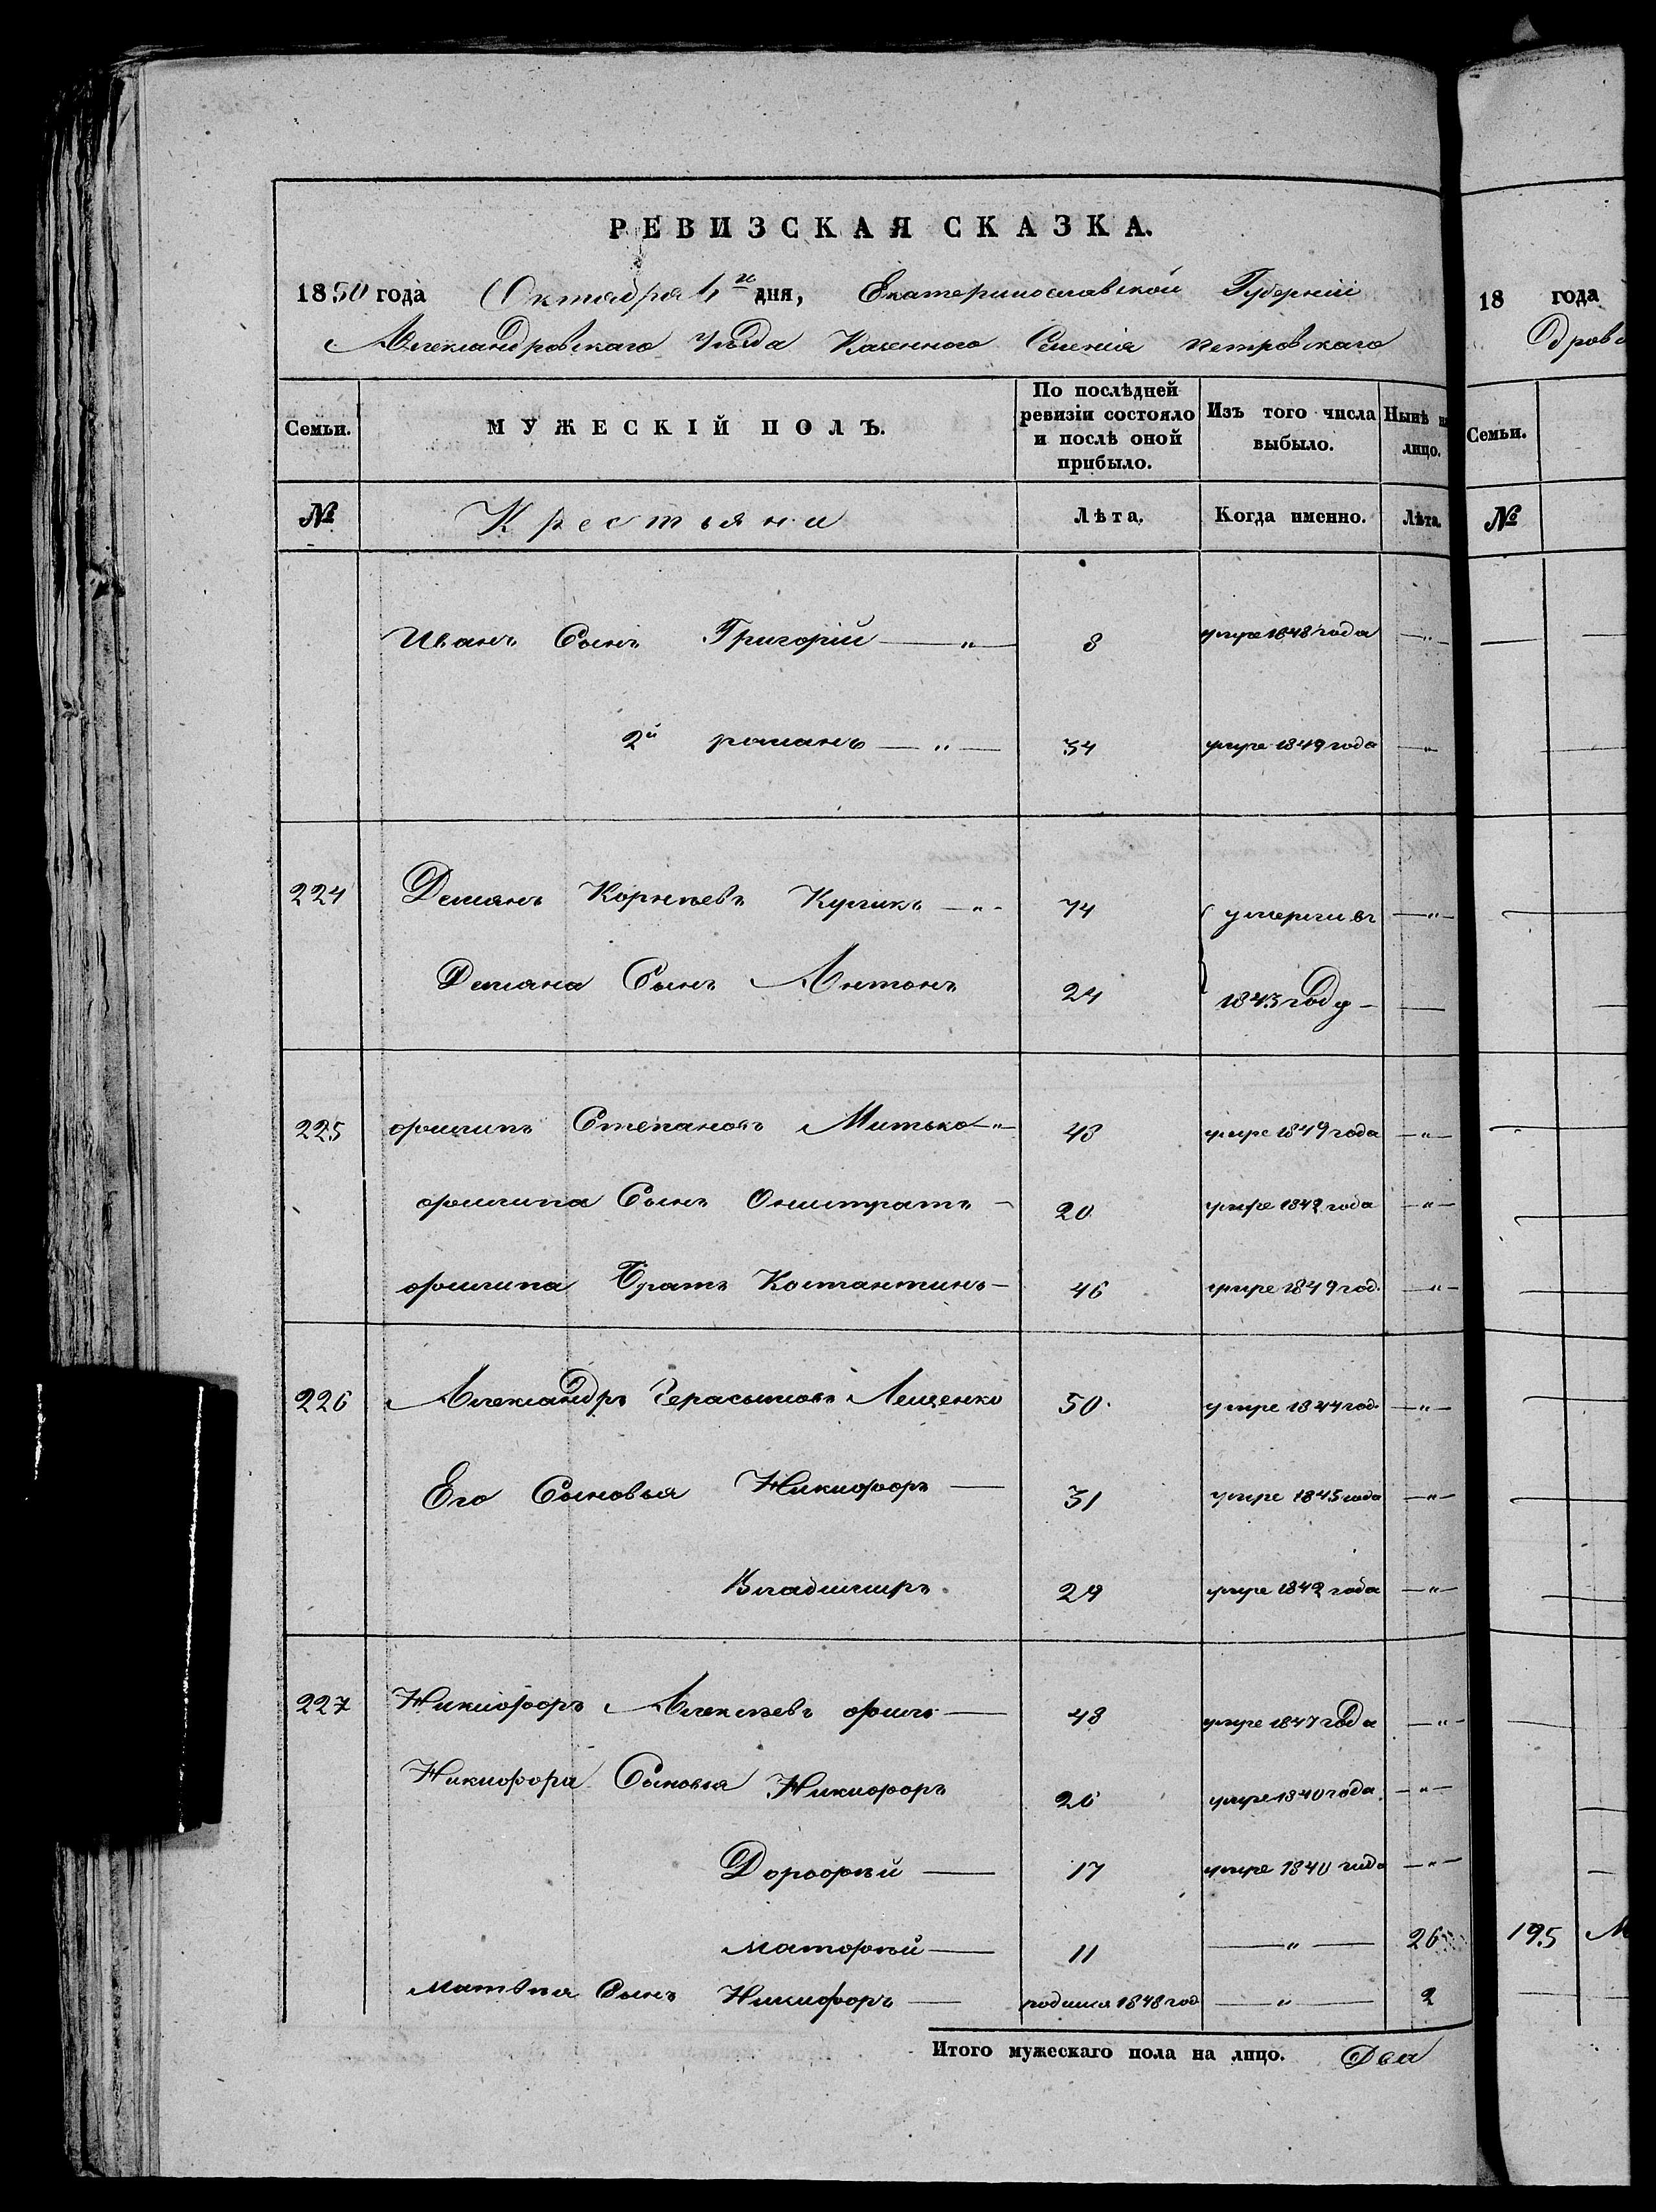 РЕВИЗСКАЯ СКАЗКА.
1850 года Октября дня, Екатеринославской Губерніи
Александровскаго уѣзда Казенного Селенія петровскаго
Семьи. МУЖЕСКІЙ ПОЛЪ. По послѣдней ревизіи состояло и послѣ оной прибыло. Изъ того числа выбыло. Нынѣ на лицо.
№ Крестьяни Лѣта. Когда именно. Лѣта.
Иванъ Сынъ Григорій — „ — 8 умре 1848 года — „ —
2й романъ — „ — 34 умре 1849 года — „ —
224 Демянъ Корнѣевъ — „ — 74 умерши въ — „ —
Демяна Сынъ Антонъ 24 1843 году — —
225 филипъ Степановъ Митько — „ — 43 умре 1849 года — „ —
филипа Сынъ Онистратъ — 20 умре 1842 года — „ —
филипа Братъ Костантинъ — 46 умре 1849 год. — „ —
226 Александръ Герасымовъ Лещенко 50 умре 1844 год. — „ —
Его Сыновья Никифоръ — 31 умре 1845 года — „ —
Владимиръ 29 умре 1842 года — „ —
227 Никифоръ Алексѣевъ — 48 умре 1847 года — „ —
Никифора Сыновья Никифоръ 20 умре 1840 года — „ —
Дорофѣй — 17 умре 1840 года — „ —
матофѣй — 11 — „ — 26
матвѣя Сынъ Никифоръ — родился 1848 год — „ — 2
Итого мужескаго пола на лицо. Два
18 года
Семьи.
№
195 М